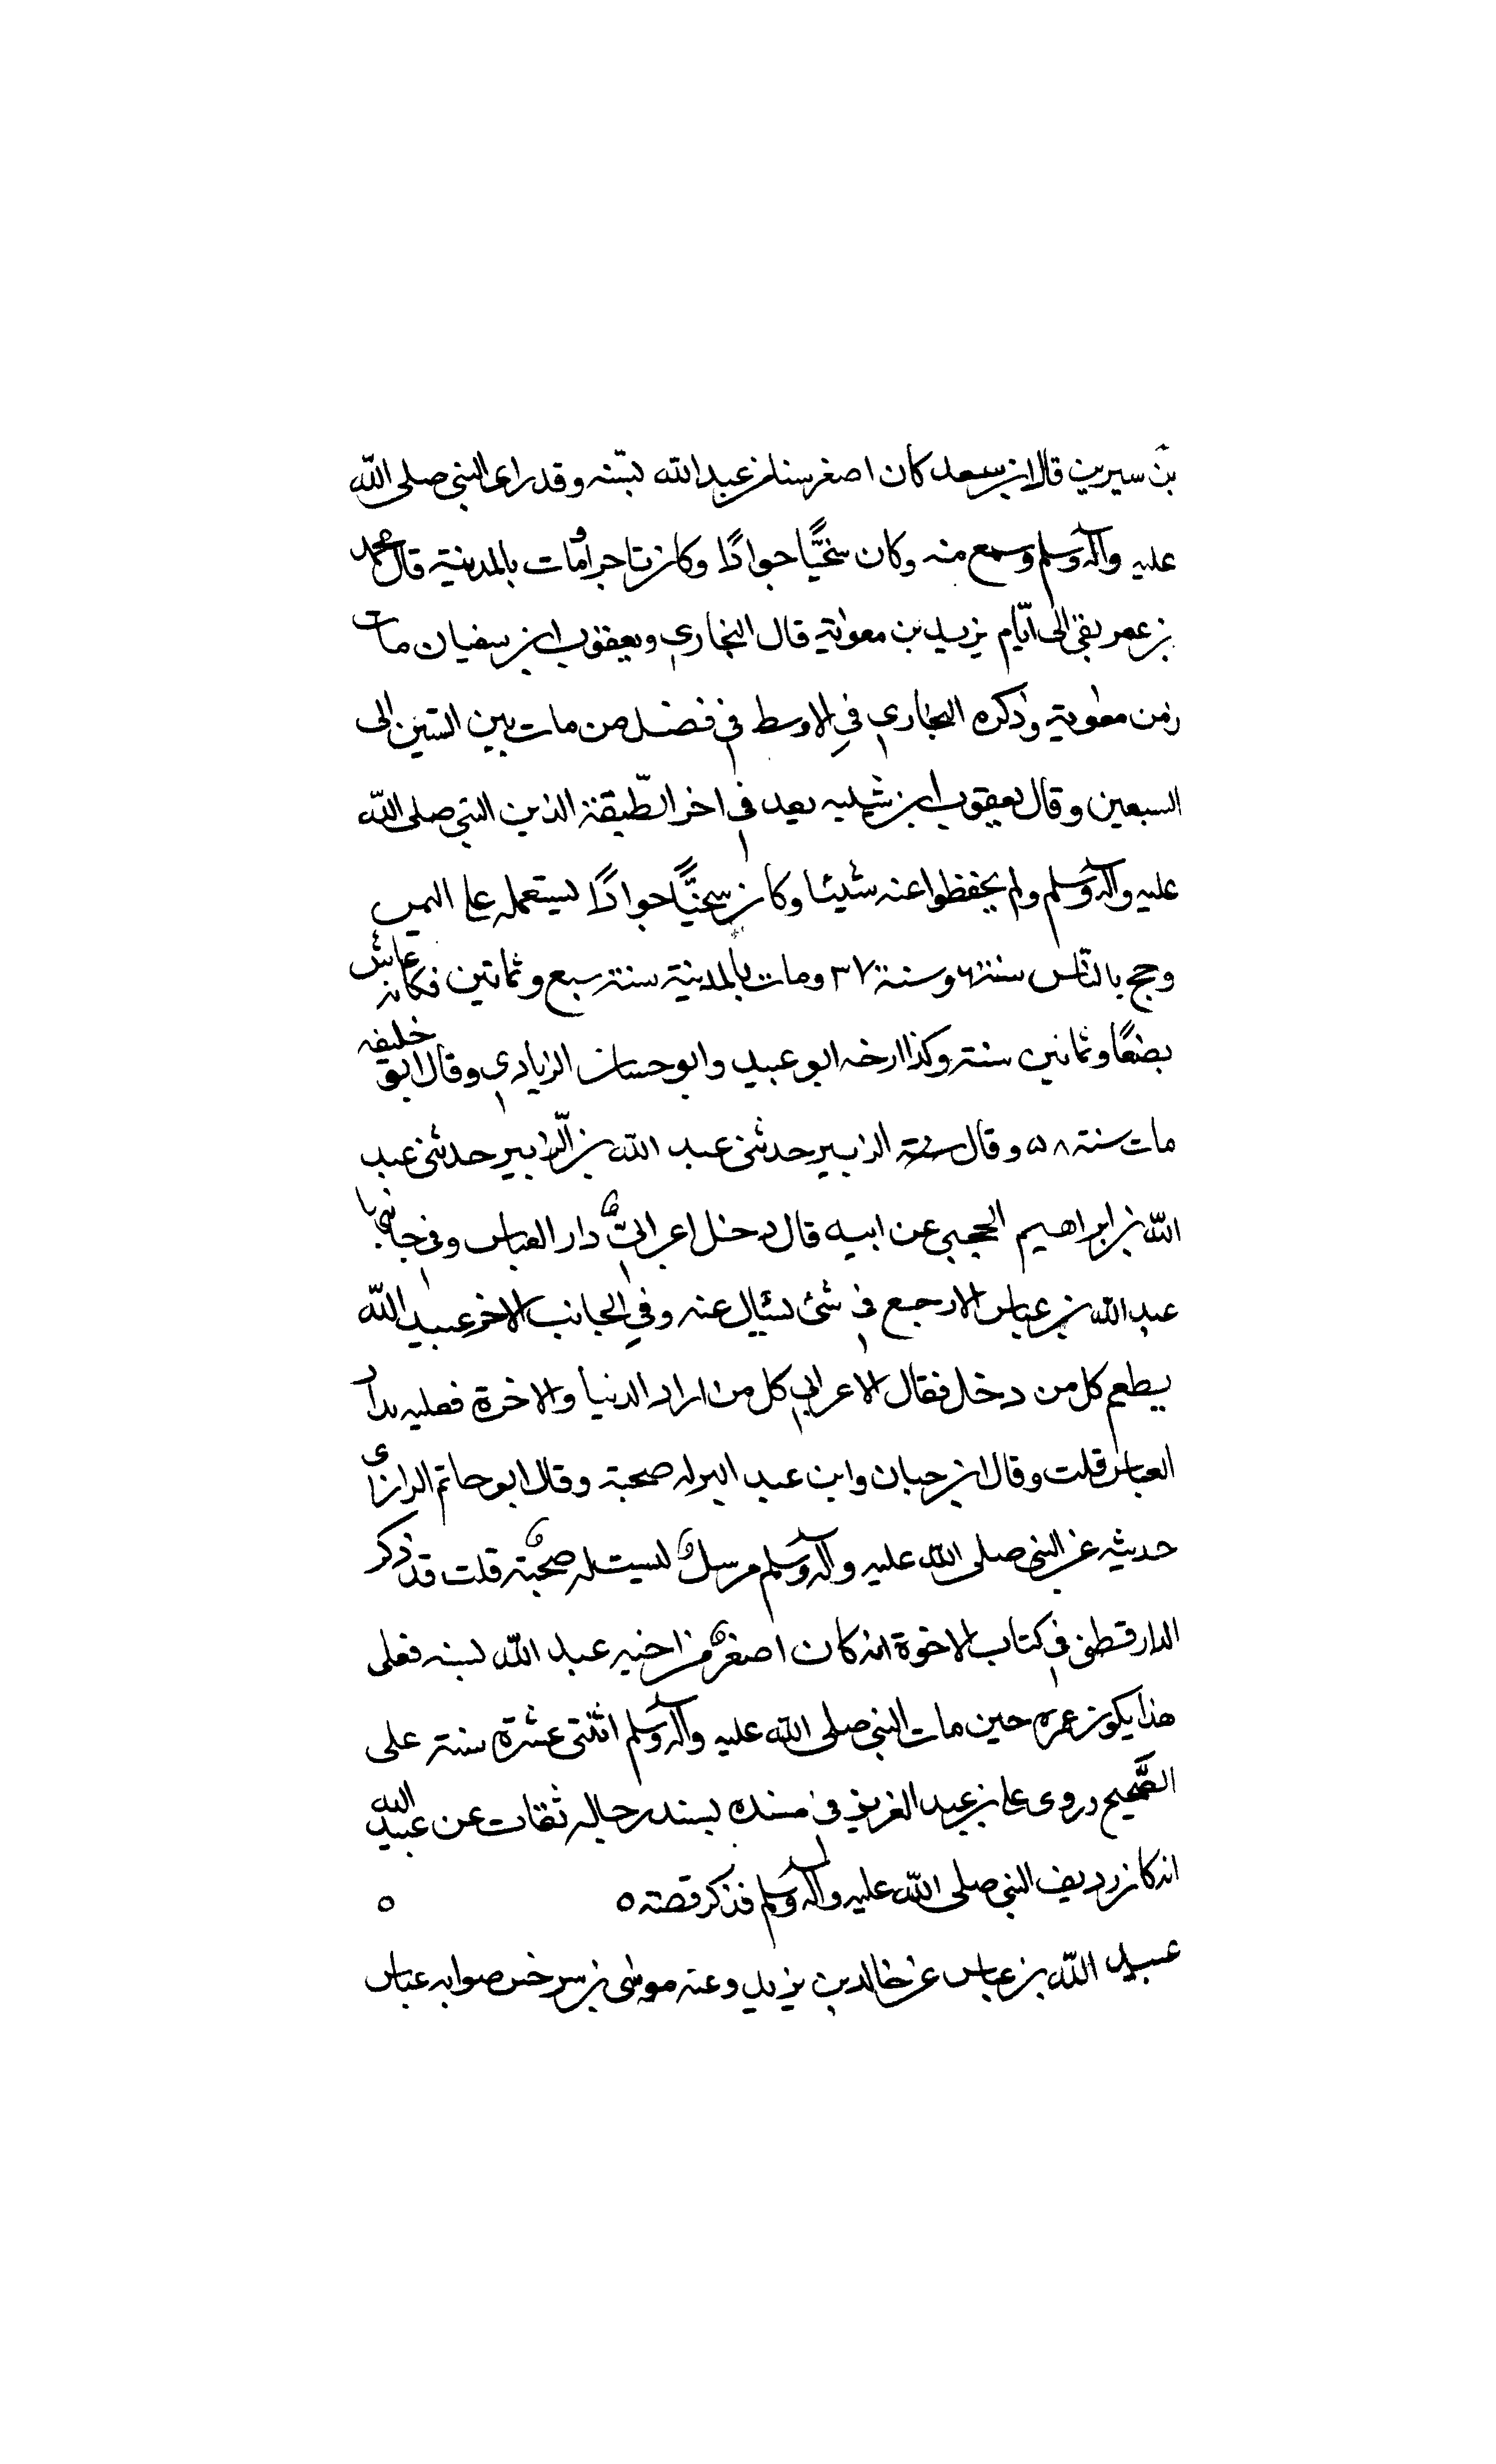 بن سيرين قال ابن سعد كان اصغر سنا من عبد الله بسنه وقد راى النبي صلى الله
عليه وآله وسلم وسمع منه وكان سخيًّا جوادًا وكان تاجرا ومات بالمدينة قال محمد
بن عمر بقي الى ايّام يزيد بن معوية قال البخاري ويعقوب ابن سفيان مات
زمن معوية وذكره البخاري في الاوسط في فضل من مات بين الستين الى
السبعين وقال يعقوب ابن شيبه يعد في اخر الطّبقة الذين النبي صلى الله
عليه وآله وسلم ولم يحفظوا عنه شيئا وكان سخيًّا جوادًا يستعمله على اليمن
وحج بالنّاس سنة ٣٦ وسنة ٣٧ ومات بالمدينة سنة سبع وثمانين فكانه عاش
بضعًا وثمانين سنة وكذا ارخه ابو عبيد وابو حسان الزيادي وقال ابو خليفه
مات سنة ٥٨ وقال الزبير حدثني عبد الله بن الزبير حدثني عبد
الله بن ابراهيم الحجبى عن ابيه قال دخل اعرابيٌّ دار العباس وفي جانبها
عبد الله بن عباس لا رجع في شئ يسئال عنه وفي الجانب الاخر عبيد الله
يطعم كل من دخل فقال الاعرابي كل من اراد الدنيا والاخرة فعليه بدار
العباس قلت وقال ابن حبان وابن عبد البر له صحبة وقال ابو حاتم الرازى
حديثه عن النبي صلى الله عليه وآله وسلم مرسلٌ ليست له صحبةٌ قلت قد ذكر
الدارقطني في كتاب الاخوة انه كان اصغرٌ من اخيه عبد الله بسنه فعلى
هذا يكون عمره حين مات النبي صلى الله عليه وآله وسلم اثنتى عشرة سنة على
الصّحيح وروى على بن عبد العزيز في مسنده بسند رجاله ثقات عن عبيد الله
انه كان رديف النبي صلى الله عليه وآله وسلم فذكر قصته ٥ ٥
عبيد الله بن عباس عن خالد بن يزيد وعنه موسى بن سرخس صوابه عباس